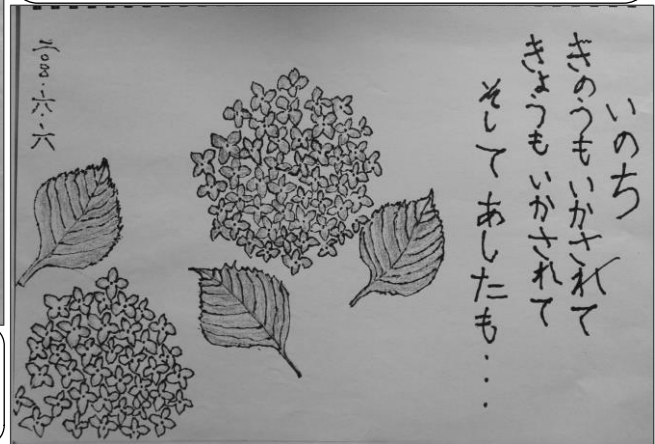 いのち
きのうもいかされて
きょうもいかされて
そしてあしたも・・・
二〇〇八・六・六